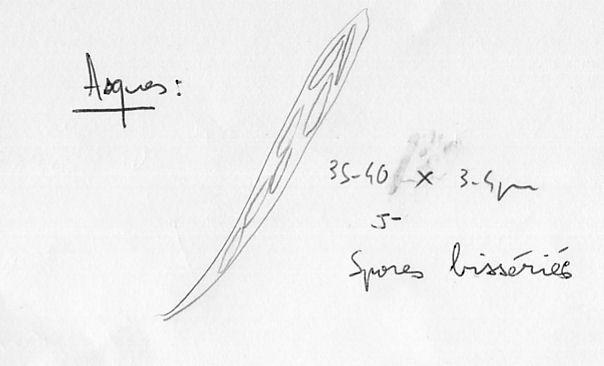 Asques:
35-40 x 3-4µm
J-
Spores bissériés